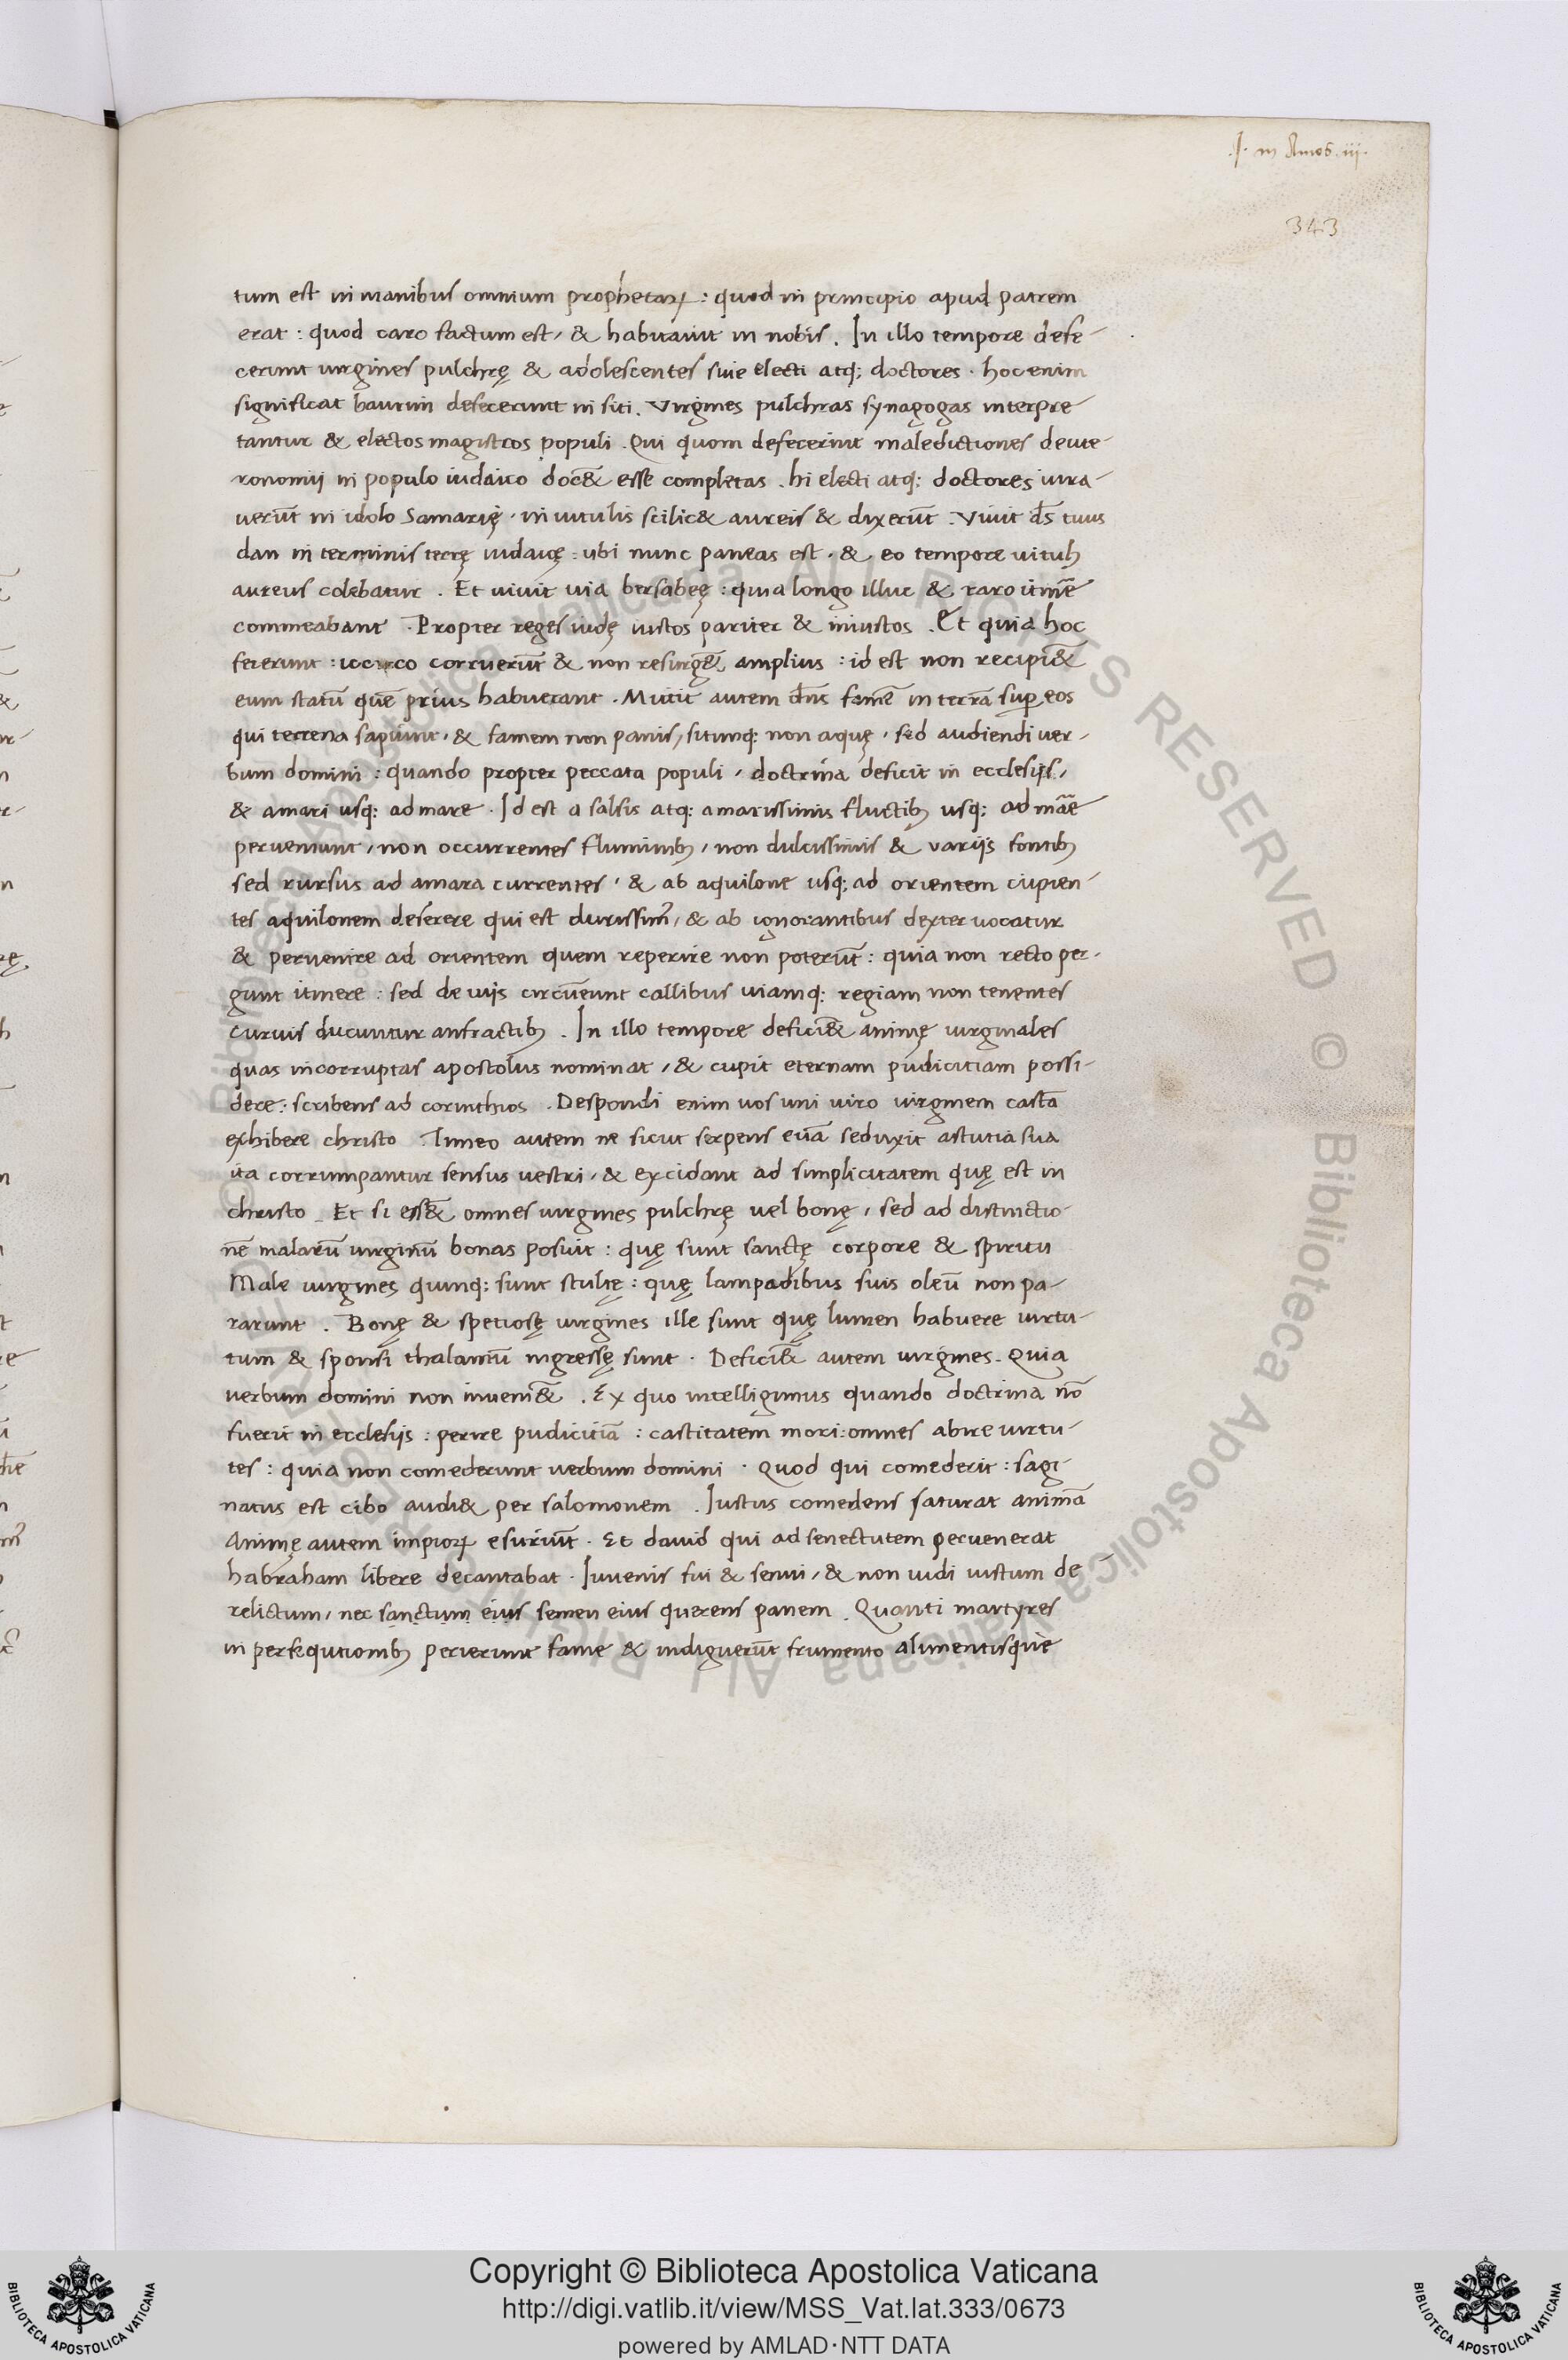 .J. in Amos .iij.
343
tum est in manibus omnium prophetaꝝ : quod in principio apud patrem
erat : quod caro factum est, & habitauit in nobis . In illo tempore defe-
cerunt uirgines pulchrę & adolescentes siue electi atq; doctores . hoc enim
significat baurim defecerunt in siti . Virgines pulchras synagogas interpre
tantur & electos magistros populi . Qui quom defecerint maledictiones deute-
ronomij in populo iudaico doc&̄ esse completas . hi electi atq; doctores iura-
uerūt in idolo Samarię . in uitulis scilic& aureis & dixerūt . Viuit d̄s tuus
dan in terminis terrę iudaicę : ubi nunc paneas est . & eo tempore uitulꝰ
aureus colebatur . Et uiuit uia bersabeę : quia longo illuc & raro itinē
commeabant . Propter reges iudę iustos pariter & iniustos . Et quia hoc
fecerunt : iccirco corruerūt & non resurg&̄ amplius : id est non recipi&̄
eum statū quē prius habuerant . Mitit autem dn̄s famē in terrā suꝑ eos
qui terrena sapiunt, & famem non panis, sitimq; non aquę, sed audiendi uer-
bum domini : quando propter peccata populi, doctrina deficit in ecclesijs,
& amari usq; ad mare . Id est a salsis atq; amarissimis fluctibꝫ usq; ad māē
perueniunt, non occurrentes fluminibꝫ, non dulcissimis & varijs fontibꝫ
sed rursus ad amara currentes, & ab aquilone usq; ad orientem cupien-
tes aquilonem deserere qui est durissimꝰ, & ab ignorantibus dexter uocatur
& peruenire ad orientem quem reperire non poterūt : quia non recto per-
gunt itinere : sed de uijs circūeunt callibus uiamq; regiam non tenentes
curuis ducuntur anfractibꝫ . In illo tempore defici&̄ animę uirginales
quas incorruptas apostolus nominat, & cupit eternam pudicitiam possi-
dere : scribens ad corinthios . Despondi enim uos uni uiro uirginem castā
exhibere christo . Timeo autem ne sicut serpens euā seduxit astutia sua
ita corrumpantur sensus uestri, & excidant ad simplicitatem quę est in
christo . Et si ess&̄ omnes uirgines pulchrę uel bonę, sed ad distinctio-
nē malarū uirginū bonas posuit : quę sunt sanctę corpore & spiritu
Male uirgines quinq; sunt stultę : quę lampadibus suis oleū non pa-
rarunt . Bonę & spetiosę uirgines ille sunt quę lumen habuere uirtu-
tum & sponsi thalamū ingressę sunt . Defici&̄ autem uirgines . Quia
uerbum domini non inueni&̄ . Ex quo intelligimus quando doctrina nō
fuerit in ecclesijs : perire pudicitiā : castitatem mori : omnes abire uirtu-
tes : quia non comederunt uerbum domini . Quod qui comederit : sagi-
natus est cibo audi& per salomonem . Iustus comedens saturat animā
Animę autem impioꝝ esuriūt . Et dauid qui ad senectutem peruenerat
habraham libere decantabat . Iuuenis fui & senui, & non uidi iustum de-
relictum, nec sanctum eius semen eius querens panem . Quanti martyres
in persequtionibꝫ perierunt fame & indiguerūt frumento alimentisque
Copyright © Biblioteca Apostolica Vaticana
http://digi.vatlib.it/view/MSS_Vat.lat.333/0673
powered by AMLAD·NTT DATA